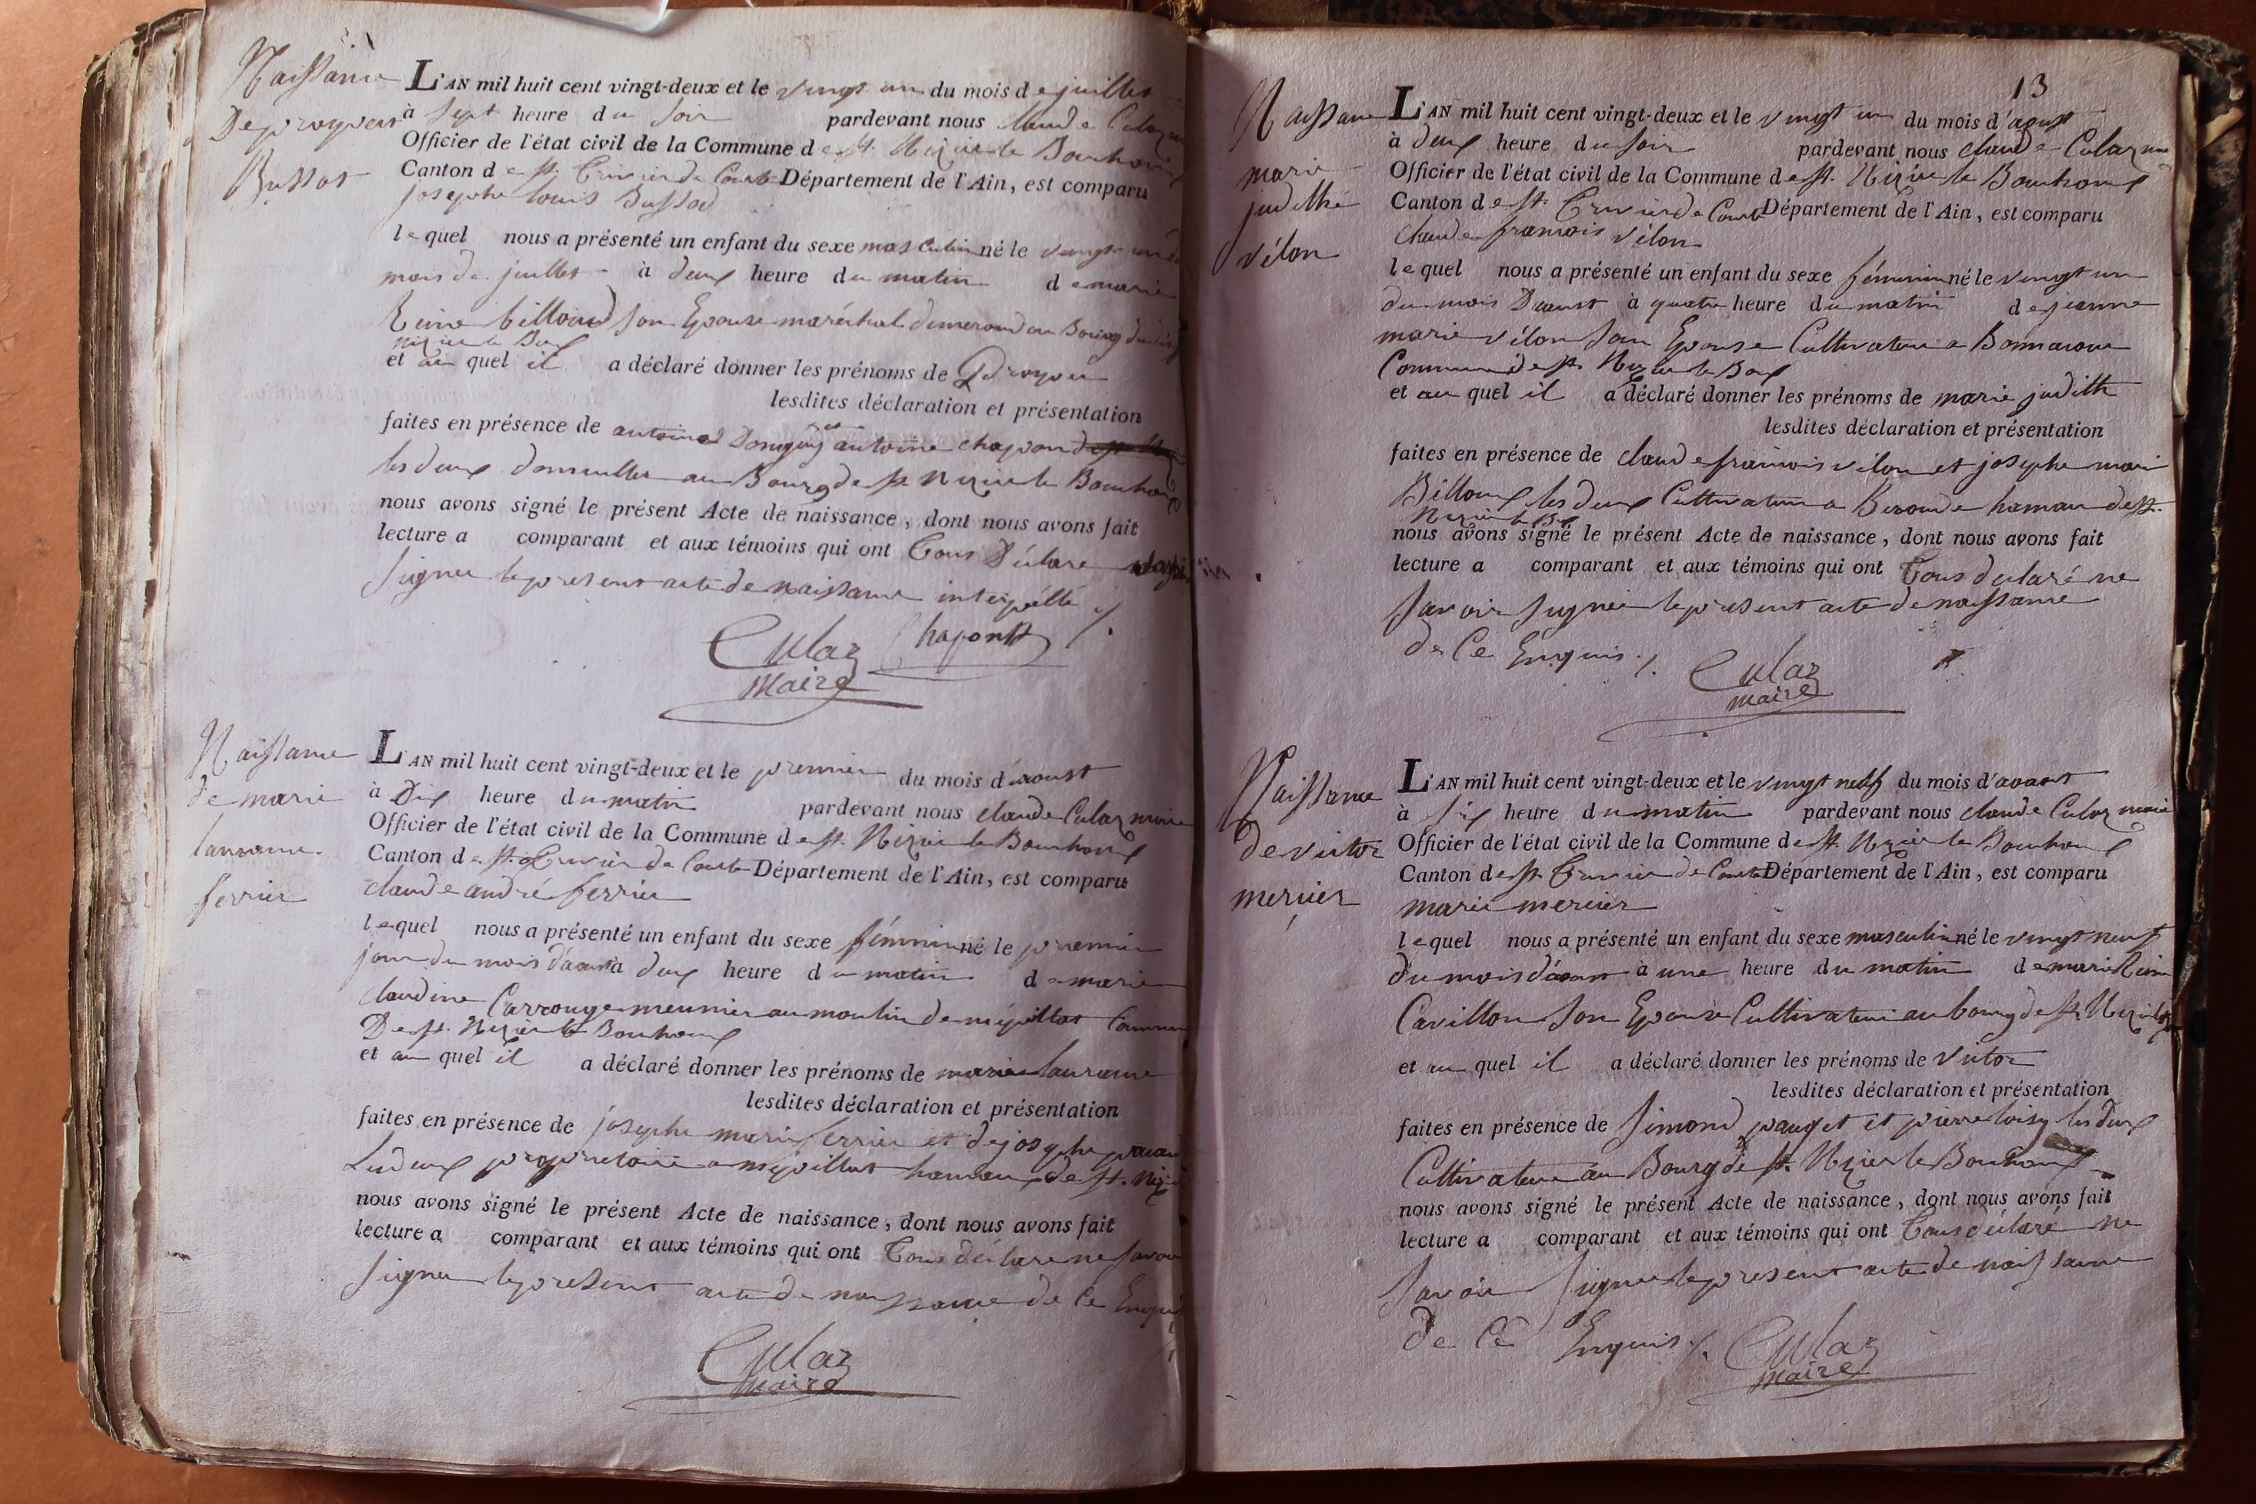 Naissance
De proyper
Bussod
L'AN mil huit cent vingt-deux et le vingt un du mois de juillet
à sept heure du soir pardevant nous claude Culaz
Officier de l'état civil de la Commune de st. Nizier le Bouhoux
Canton de st. Trivier de Courte Département de l'Ain, est comparu
josephe louis Bussod
lequel nous a présenté un enfant du sexe masculin né le vingt un
mois de juillet à deux heure du matin de marie
Reine billoud son Epouse maréchal au Bourg
nizier le Boux
et au quel il a déclaré donner les prénoms de
lesdites déclaration et présentation
faites en présence de antoine Donguy et antoine chapon
les deux domicilles au Bourg de st Nizier le Bouhoux
nous avons signé le présent Acte de naissance, dont nous avons fait
lecture a comparant et aux témoins qui ont tous Déclare
signer le present acte de naissance interpéllé ./.
Culaz Chapont
Maire
Naissance
de marie
laurance
ferrier
L'AN mil huit cent vingt-deux et le premier du mois d'aoust
à Dix heure du matin pardevant nous claude Culaz maire
Officier de l'état civil de la Commune de st. Nizier le Bouhoux
Canton de st. Trivier de Courte Département de l'Ain, est comparu
claude andré ferrier
lequel nous a présenté un enfant du sexe féminin né le premier
jour du mois d'aoust à deux heure du matin de marie
claudine Carrouge meunier au moulin de mépillat Commune
De st. Nizier le Bouhoux
et au quel il a déclaré donner les prénoms de marie laurance
lesdites déclaration et présentation
faites en présence de josephe marie ferrier et de josephe
Les deux propretaire a mépillat hameau de st. Nizier
nous avons signé le présent Acte de naissance, dont nous avons fait
lecture a comparant et aux témoins qui ont tous déclare ne savoir
signer le present acte de naissance de ce Enquis
./.
Culaz
Maire
13
Naissance
marie
judithe
vélon
L'AN mil huit cent vingt-deux et le vingt un du mois d'aoust
à deux heure du soir pardevant nous claude Culaz maire
Officier de l'état civil de la Commune de st. Nizier le Bouhoux
Canton de st. Trivier de Courte Département de l'Ain, est comparu
claude francois vélon
lequel nous a présenté un enfant du sexe féminin né le vingt un
du mois Daoust à quatre heure du matin de jeanne
marie vélon son Epouse Cultivateur a Bonnavoue
Commune de st. Nizier le Boux
et au quel il a déclaré donner les prénoms de marie judith
lesdites déclaration et présentation
faites en présence de claude francois vélon et josephe marie
Billoux les deux Cultivateur a Beronde hamau de st.
Nizier le Bx
nous avons signé le présent Acte de naissance, dont nous avons fait
lecture a comparant et aux témoins qui ont tous declaré ne
savoir signer le present acte de naissance
de Ce Enquis ./.
Culaz
maire
Naissance
de victor
mercier
L'AN mil huit cent vingt-deux et le vingt neuf du mois d'aoust
à six heure du matin pardevant nous claude Culaz maire
Officier de l'état civil de la Commune de st. Nizier le Bouhoux
Canton de st. Trivier de Courte Département de l'Ain, est comparu
marie mercier
lequel nous a présenté un enfant du sexe masculin né le vingt neuf
du mois d'aoust à une heure du matin de marie Reine
Cavillon son Epouse Cultivateur au bourg de st. Nizier le Bx
et au quel il a déclaré donner les prénoms de Victor
lesdites déclaration et présentation
faites en présence de simond pauget et pierre loisy les deux
Cultivateur au Bourg de st. Nizier le Bouhoux
nous avons signé le présent Acte de naissance, dont nous avons fait
lecture a comparant et aux témoins qui ont tous déclaré ne
savoir signer le present acte de naissance
de Ce Enquis ./.
Culaz
Maire